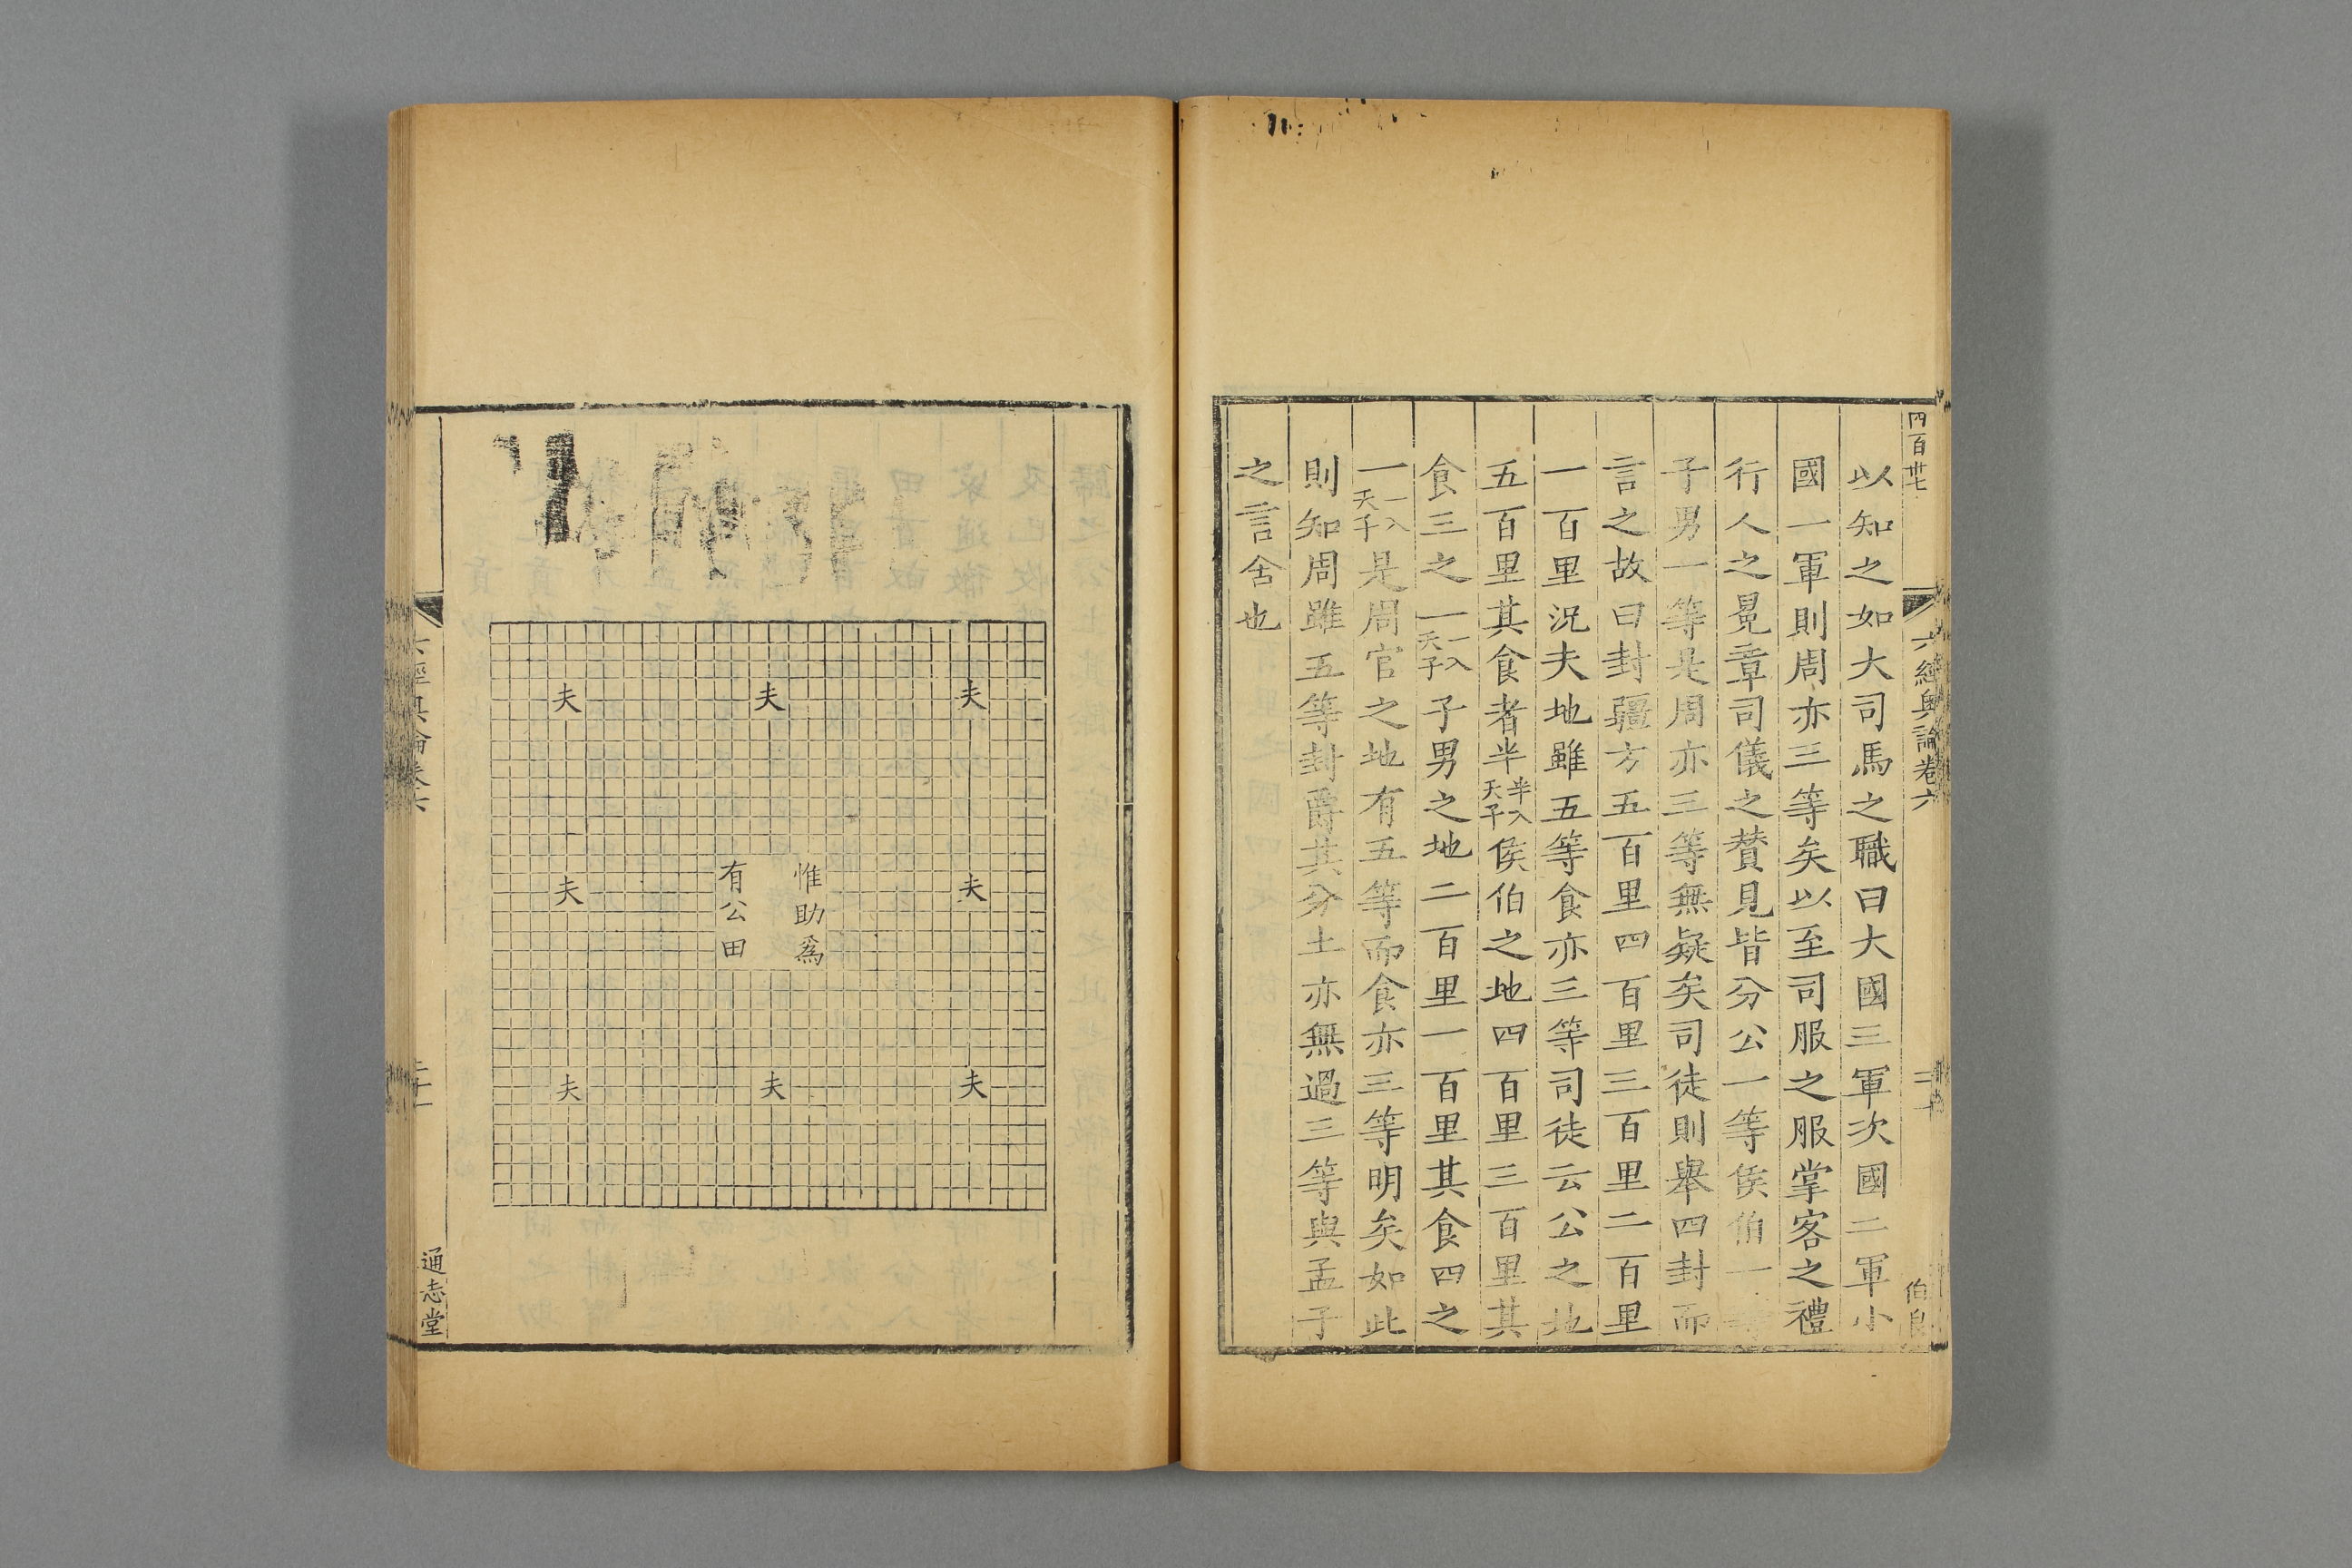 四百卅七
六經奥論卷六
伯良
以知之如大司馬之職曰大國三軍次國二軍小
國一軍則周亦三等矣以至司服之服掌客之禮
行人之冕章司儀之賛見皆分公一等侯伯一等
子男一等是周亦三等無疑矣司徒則舉四封而
言之故曰封疆方五百里四百里三百里二百里
一百里況夫地雖五等食亦三等司徒云公之地
五百里其食者半半入天子侯伯之地四百里三百里其
食三之一一入天子子男之地二百里一百里其食四之
一一入天子是周官之地有五等而食亦三等明矣如此
則知周雖五等封爵其分土亦無過三等與孟子
之言舍也
夫
夫
夫
夫
惟助爲
有公田
夫
夫
夫
夫
通志堂